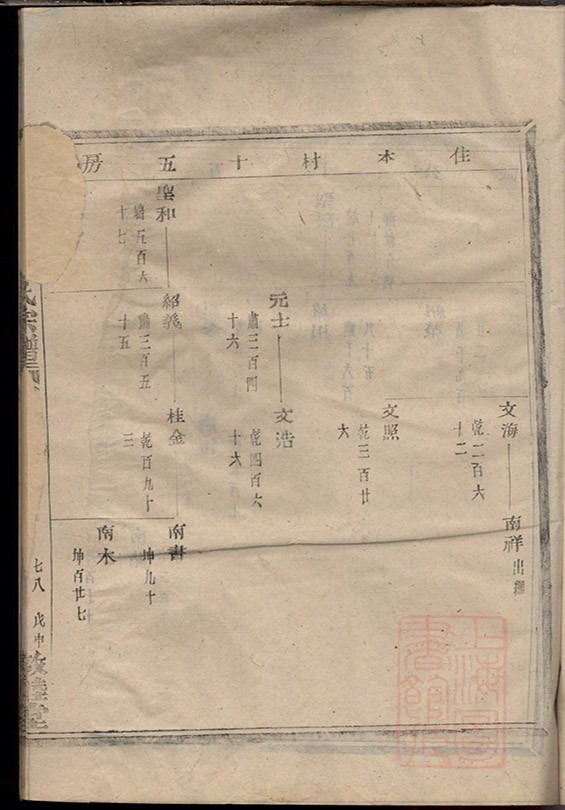 住本村十五房
文海
乾二百六
十二
南祥
文照
乾三百廿
六
元士
肅三百四
十六
文浩
乾四百六
十六
聖和
十七
紹義
肅三百五
十五
桂金
乾百九十
三
南書
坤九十
南木
坤百廿七
宗譜
七八
戊申